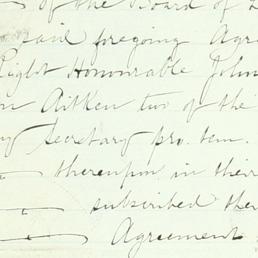 of the Board of
said foregoing Agre
Right Honourable John
on Aitken two of the
Secretary pro. tem.
thereupon in their
subscribed the
Agreement